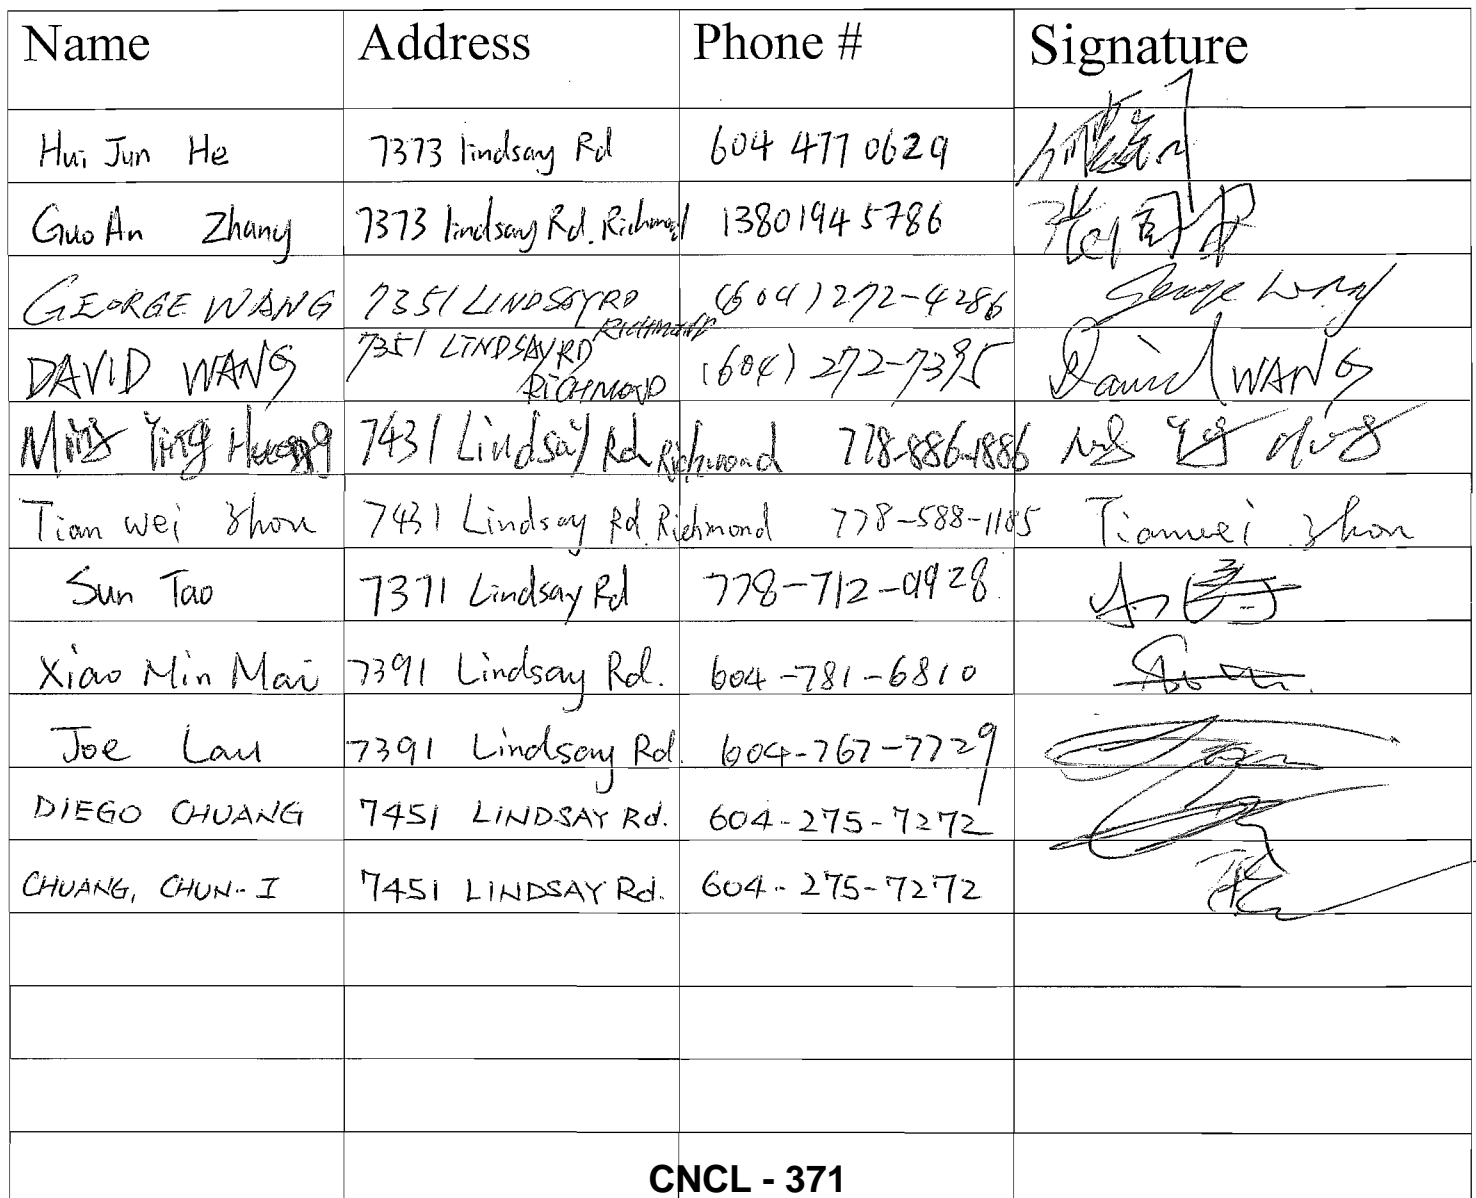 Name Address Phone # Signature
Hui Jun He 7373 lindsay Rd 604 477 0629
Guo An Zhang 7373 lindsay Rd. Richmond 13801945786
GEORGE WANG 7351 LINDSAY RD RICHMOND (604) 272-4286 George Wang
DAVID WANG 7351 LINDSAY RD RICHMOND (604) 272-7395 David WANG
Ming Ying Huang 7431 Lindsay Rd Richmond 778-886-1886
Tian wei Zhou 7431 Lindsay Rd Richmond 778-588-1185 Tianwei Zhou
Sun Tao 7371 Lindsay Rd 778-712-9928
Xiao Min Mai 7391 Lindsay Rd. 604-781-6810
Joe Lau 7391 Lindsay Rd. 604-767-7729
DIEGO CHUANG 7451 LINDSAY Rd. 604-275-7272
CHUANG, CHUN-I 7451 LINDSAY Rd. 604-275-7272
CNCL - 371